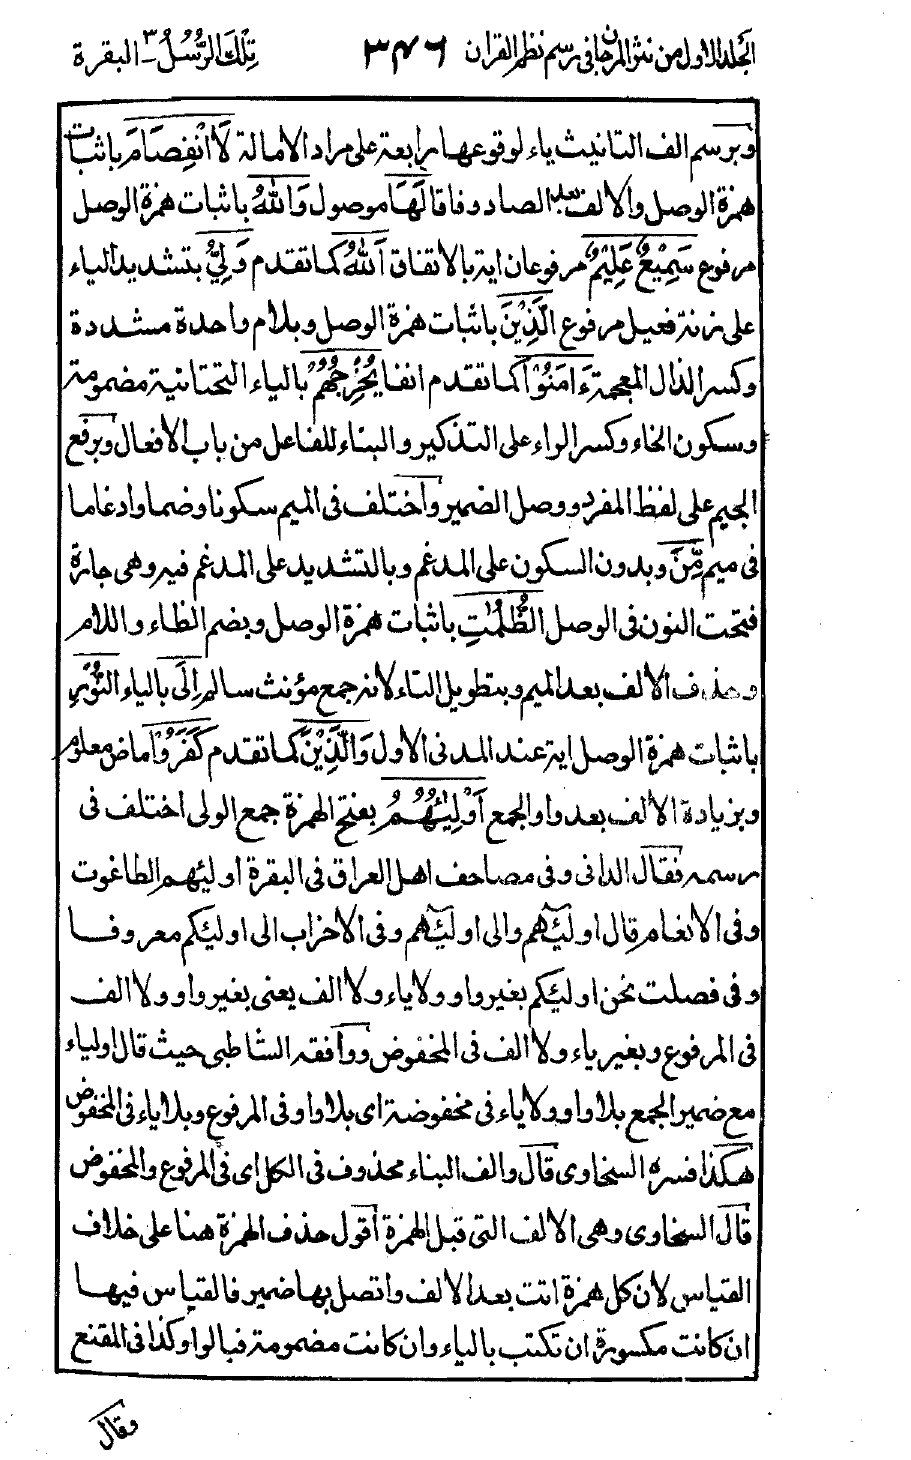 الجلد الاول من نثر المرجان في رسم نظم القران ٣٤٦ تِلْكَ الرُّسُلُ ٣ ـ البقرة
وبرسم الف التانيث ياء لوقوعها رابعة على مراد الامالة لَا انْفِصَامَ باثبات
همزة الوصل والالف بعد الصاد وفاقا لَهَا موصول وَاللهُ باثبات همزة الوصل
مرفوع سَمِيْعٌ عَلِيْمٌ مرفوعان اية بالاتفاق اَللهُ كما تقدم وَلِيُّ بتشديد الياء
على زنة فعيل مرفوع الَّذِيْنَ باثبات همزة الوصل وبلام واحدة مشددة
وكسر الذال المعجمة ءَامَنُوْا كما تقدم انفا يُخْرِجُهُمْ بالياء التحتانية مضمومة
وسكون الخاء وكسر الراء على التذكير والبناء للفاعل من باب الافعال وبرفع
الجيم على لفظ المفرد ووصل الضمير واختلف في الميم سكونا وضما وادغاما
في ميم مِّنَ وبدون السكون على المدغم وبالتشديد على المدغم فيه وهي جارة
فتحت النون في الوصل الظُّلُمٰتِ باثبات همزة الوصل وبضم الظاء واللام
وحذف الالف بعد الميم وبتطويل التاء لانه جمع مؤنث سالم اِلَى بالياء النُّوْرِ
باثبات همزة الوصل اية عند المدني الاول وَالَّذِيْنَ كما تقدم كَفَرُوْا ماض معلوم
وبزيادة الالف بعد واو الجمع اَوْلِيٰٓئُهُمُ بفتح الهمزة جمع الولى اختلف في
رسمه فقال الداني وفي مصاحف اهل العراق في البقرة اوليئهم الطاغوت
وفي الانعام قال اوليٰٓئهم والى اوليٰٓئهم وفي الاحزاب الى اوليئكم معروفا
وفي فصلت نحن اوليئكم بغير واو ولا ياء ولا الف يعني بغير واو ولا الف
في المرفوع وبغير ياء ولا الف في المخفوض ووافقه الشاطبي حيث قال اولياء
مع ضمير الجمع بلا واو ولا ياء في مخفوضة اى بلا واو في المرفوع وبلا ياء في المخفوض
هكذا فسره السخاوى قال والف البناء محذوف في الكل اى في المرفوع والمخفوض
قال السخاوى وهي الالف التي قبل الهمزة اقول حذف الهمزة هنا على خلاف
القياس لان كل همزة اتت بعد الالف واتصل بها ضمير فالقياس فيها
ان كانت مكسورة ان تكتب بالياء وان كانت مضمومة فبالواو كذا في المقنع
وقال